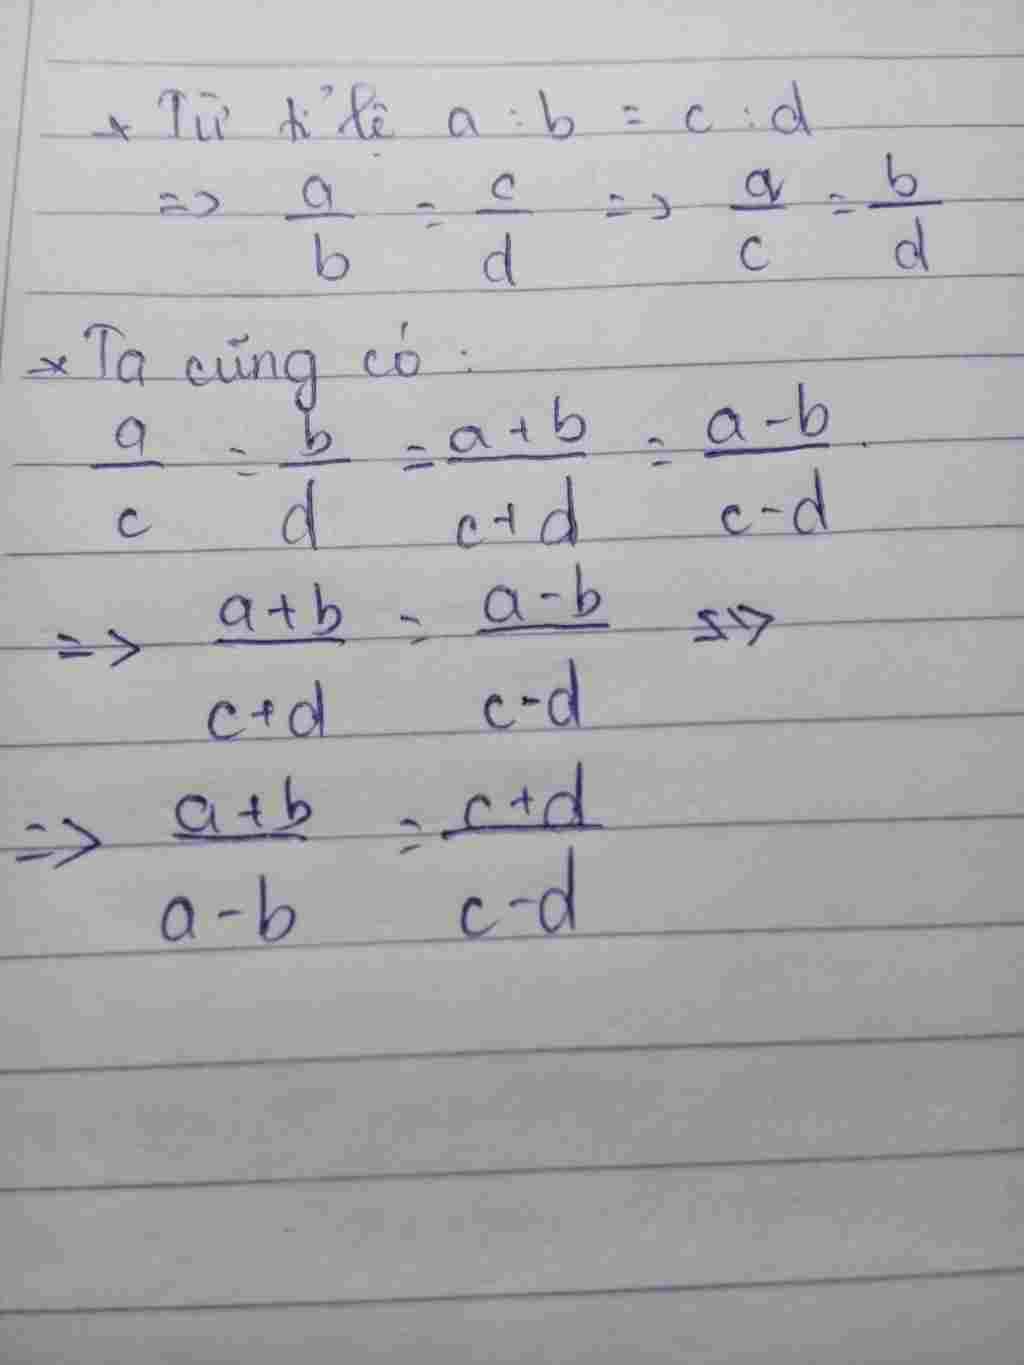 * Từ tỉ lệ a : b = c : d
=> a/b = c/d => a/c = b/d
* Ta cũng có :
a/c = b/d = (a+b)/(c+d) = (a-b)/(c-d).
=> (a+b)/(c+d) = (a-b)/(c-d) =>
=> (a+b)/(a-b) = (c+d)/(c-d)